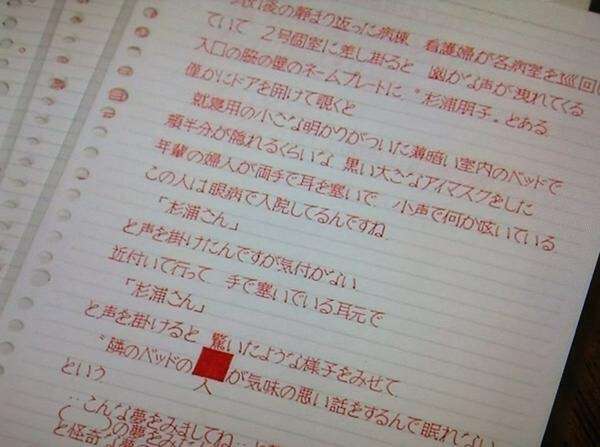 後の静まり返った病棟 看護婦が各病室を巡回
ていて 2号個室に差し掛ると 幽かな声が洩れてくる
入口の脇の壁のネームプレートに、"杉浦朋子"とある
僅かにドアを開けて覗くと
就寝用の小さな明かりがついた薄暗い室内のベッドで
顔半分が隠れるくらいな 黒い大きなアイマスクをした
年輩の婦人が両手で耳を塞いで 小声で何か呟いている
この人は眼病で入院してるんですね
「杉浦さん」
と声を掛けたんですが気付かない
近付いて行って 手で塞いでいる耳元で
「杉浦さん」
と声を掛けると 驚いたような様子をみせて
"隣のベッドの 人が気味の悪い話をするんで眠れない
という
…こんな夢をみましてね…と
の夢をみ
と怪奇な夢